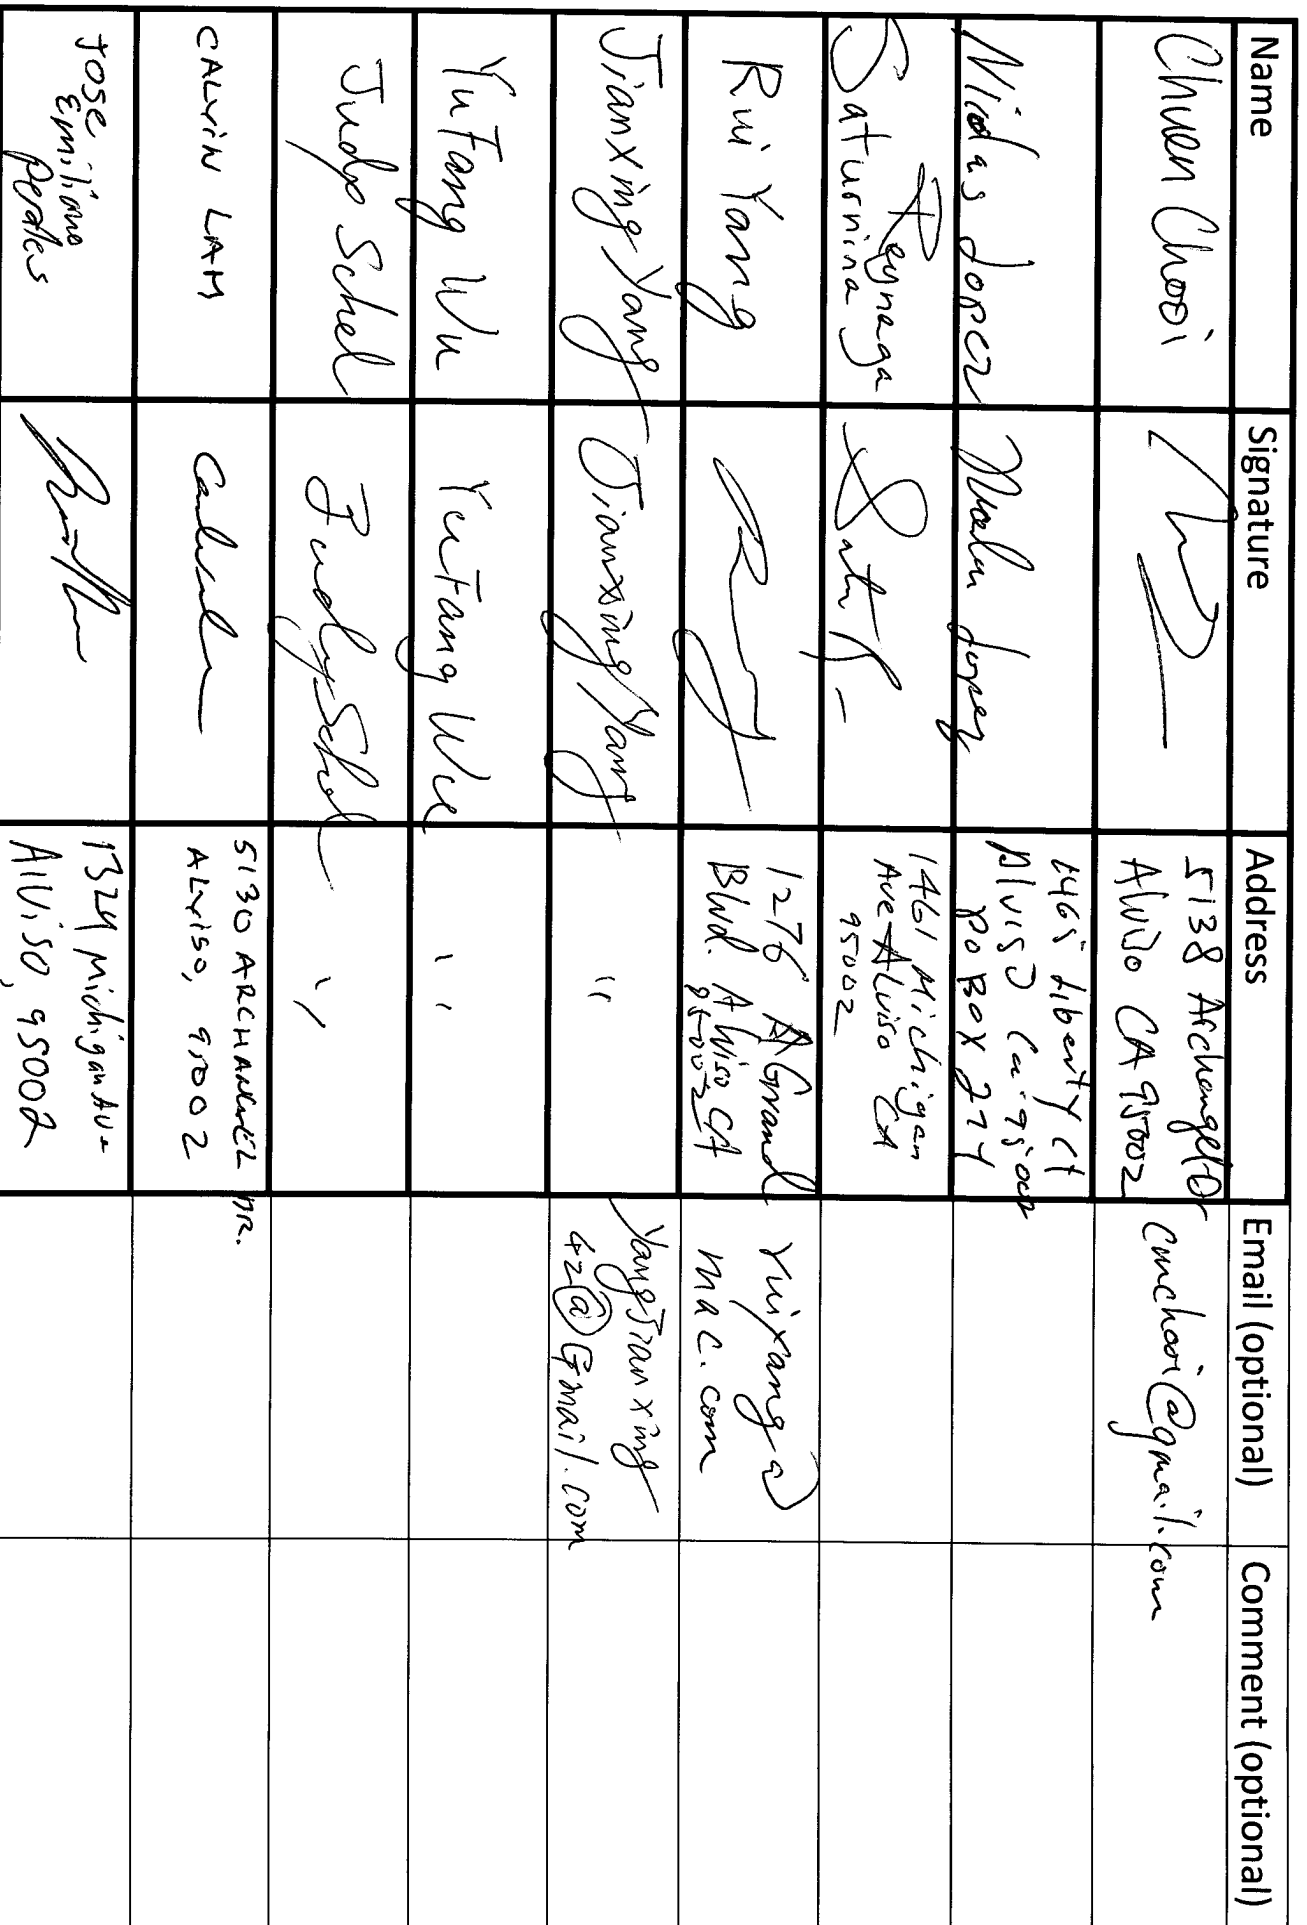 Name Signature Address Email (optional) Comment (optional)
Chuen Chooi
5138 Archangel Dr
Alviso CA 95002
cmchooi@gmail.com
Lopez
Lopez
Liberty Ct
Alviso Ca.
PO BOX 274
Reynaga
Saturnina
1461 Michigan
Ave Alviso CA
95002
Rui Yang
1276 A Grand
Blvd. Alviso CA
95002
ruiyang@
mac.com
Jianxing Yang
Jianxing Yang
"
YangJianxing
42@Gmail.com
YuFang Wu
YuFang Wu
"
Judy Schel
Judy Schel
"
CALVIN LAM
5130 ARCHANGEL DR.
ALVISO, 95002
JOSE
Emiliano
1324 Michigan Ave
AlViSO, 95002